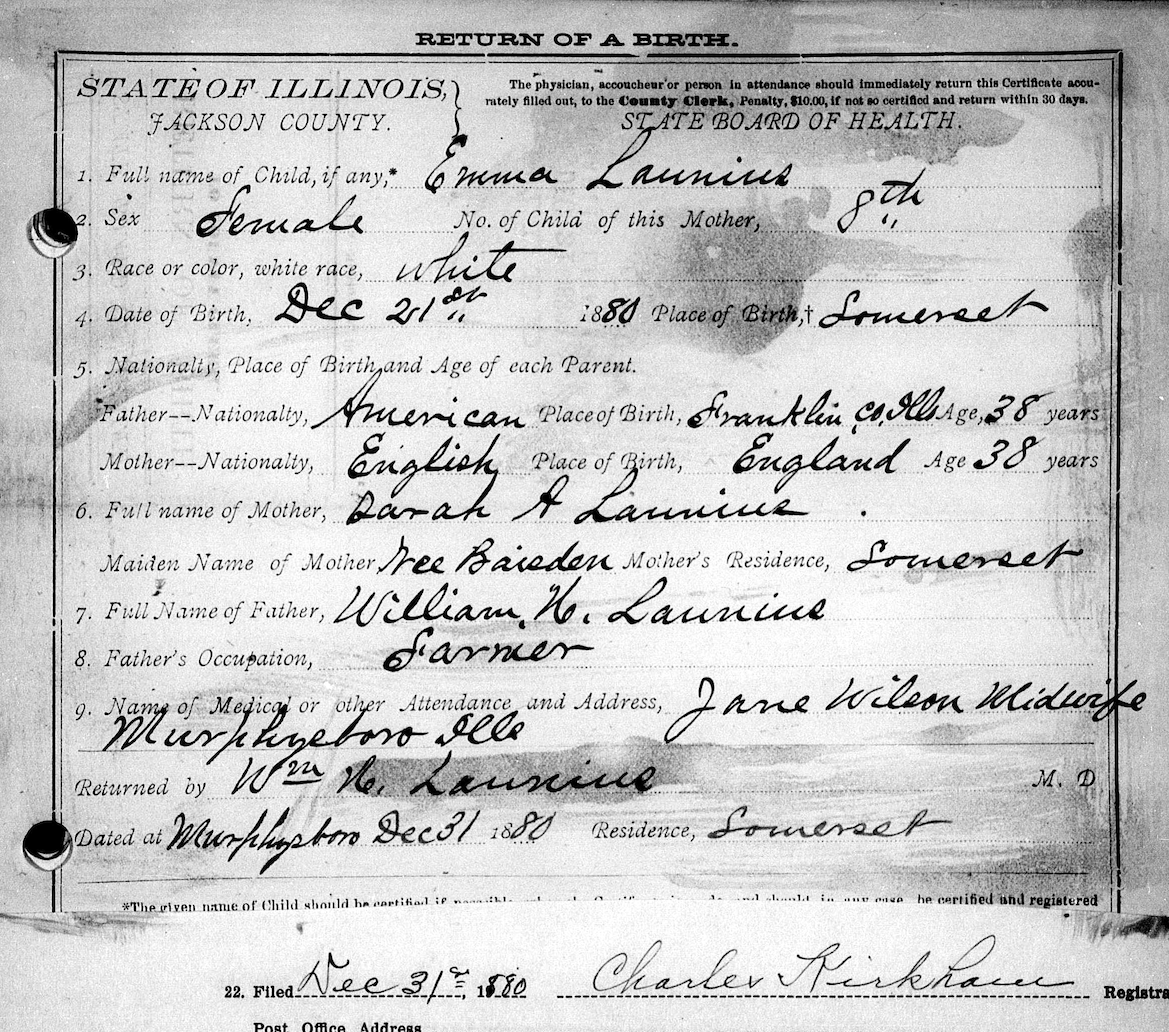 RETURN OF A BIRTH.
STATE OF ILLINOIS,
JACKSON COUNTY.
The physician, accoucheur or person in attendance should immediately return this Certificate accu-
rately filled out, to the County Clerk, Penalty, $10.00, if not so certified and return within 30 days.
STATE BOARD OF HEALTH.
1. Full name of Child, if any,* Emma Launius
2. Sex Female No. of Child of this Mother, 8th
3. Race or color, white race, white
4. Date of Birth, Dec 21st 1880 Place of Birth,† Somerset
5. Nationalty, Place of Birth and Age of each Parent.
Father--Nationalty, American Place of Birth, Franklin co, Ills Age, 38 years
Mother--Nationalty, English Place of Birth, England Age 38 years
6. Full name of Mother, Sarah A Launius
Maiden Name of Mother Nee Baisden Mother's Residence, Somerset
7. Full Name of Father, William H. Launius
8. Father's Occupation, Farmer
9. Name of Medical or other Attendance and Address, Jane Wilson Midwife
Murphysboro Ills
Returned by Wm H. Launius M. D
Dated at Murphysboro Dec 31 1880 Residence, Somerset
*The given name of Child should be certified if possible and should in any case, be certified and registered
22. Filed Dec 31st, 1880 Charles Kirkham Registra
Post Office Address